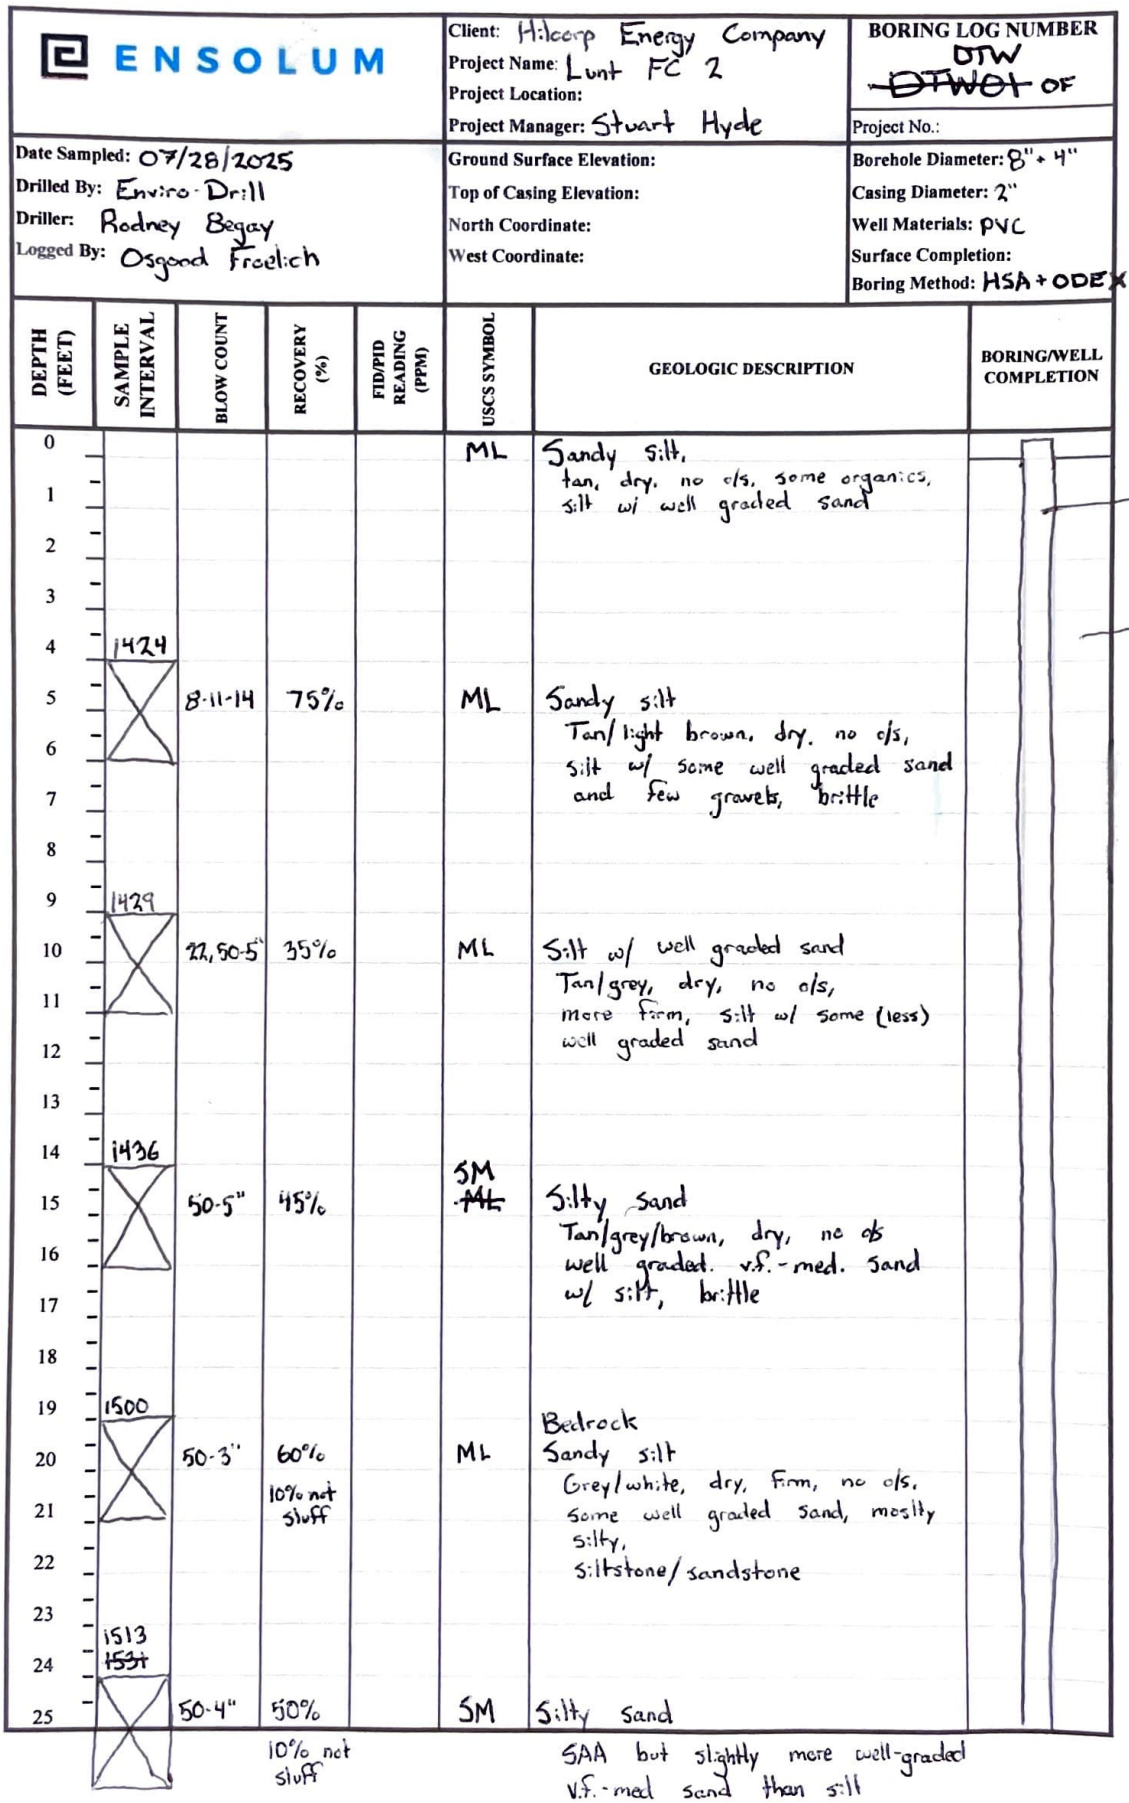 ENSOLUM
Client: Hilcorp Energy Company
Project Name: Lunt FC 2
Project Location:
Project Manager: Stuart Hyde
BORING LOG NUMBER
DTW
DTW01 OF
Project No.:
Date Sampled: 07/28/2025
Drilled By: Enviro-Drill
Driller: Rodney Begay
Logged By: Osgood Froelich
Ground Surface Elevation:
Top of Casing Elevation:
North Coordinate:
West Coordinate:
Borehole Diameter: 8" + 4"
Casing Diameter: 2"
Well Materials: PVC
Surface Completion:
Boring Method: HSA + ODEX
DEPTH (FEET)
SAMPLE INTERVAL
BLOW COUNT
RECOVERY (%)
FID/PID READING (PPM)
USCS SYMBOL
GEOLOGIC DESCRIPTION
BORING/WELL COMPLETION
0
ML Sandy silt,
tan, dry, no o/s, some organics,
1
silt w/ well graded sand
2
3
4 1424
5 8-11-14 75% ML Sandy silt
Tan/light brown, dry, no o/s,
6
silt w/ some well graded sand
7 and few gravels, brittle
8
9 1429
10 22,50-5" 35% ML Silt w/ well graded sand
Tan/grey, dry, no o/s,
11 more firm, silt w/ some (less)
12 well graded sand
13
14 1436
SM
15 50-5" 45% ML Silty sand
Tan/grey/brown, dry, no o/s
16 well graded. v.f.-med. sand
17 w/ silt, brittle
18
19 1500
Bedrock
20 50-3" 60% ML Sandy silt
10% not Grey/white, dry, firm, no o/s,
21 sluff some well graded sand, moslty
silty,
22 siltstone/sandstone
23
1513
24 1531
25 50-4" 50% SM Silty sand
10% not SAA but slightly more well-graded
sluff v.f.-med sand than silt